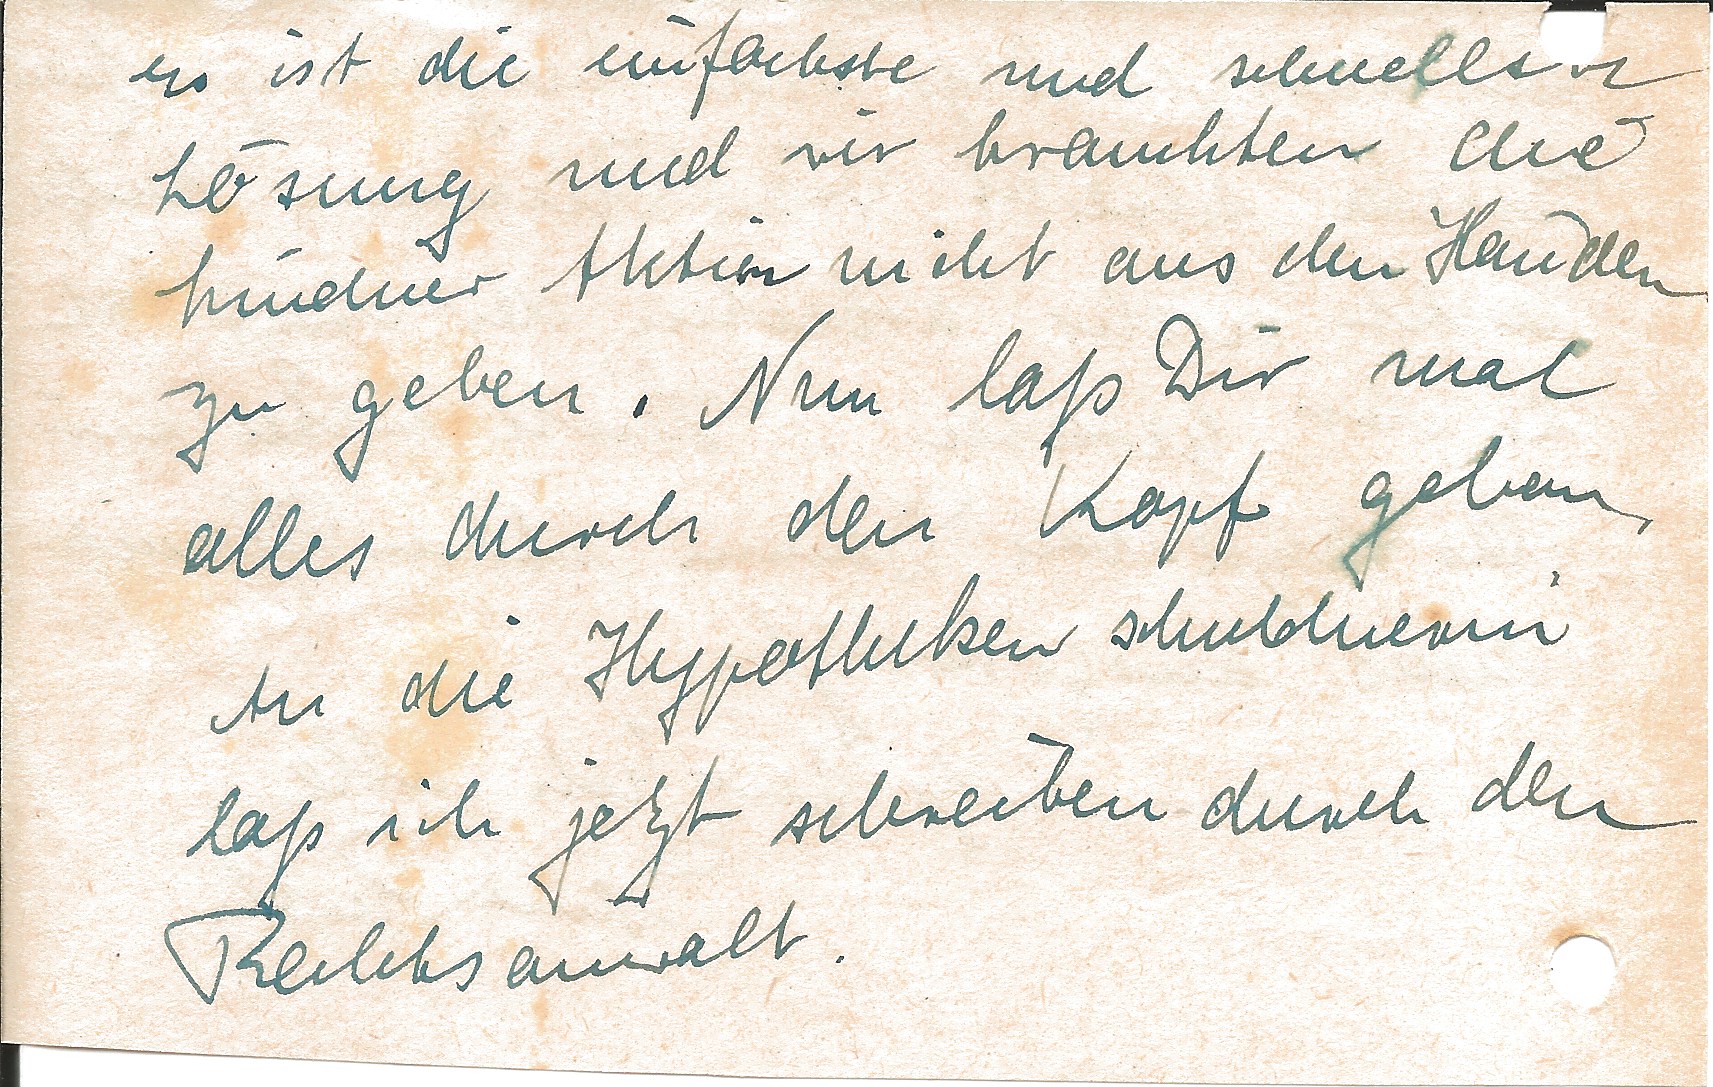 es ist die einfachste und schnellste
Lösung und wir brauchten die
Aktien nicht aus den Händen
zu geben. Nun laß Dir mal
alles durch den Kopf gehen,
An die Hypotheken schuldnerin
laß ich jetzt schreiben durch den
Rechtsanwalt.